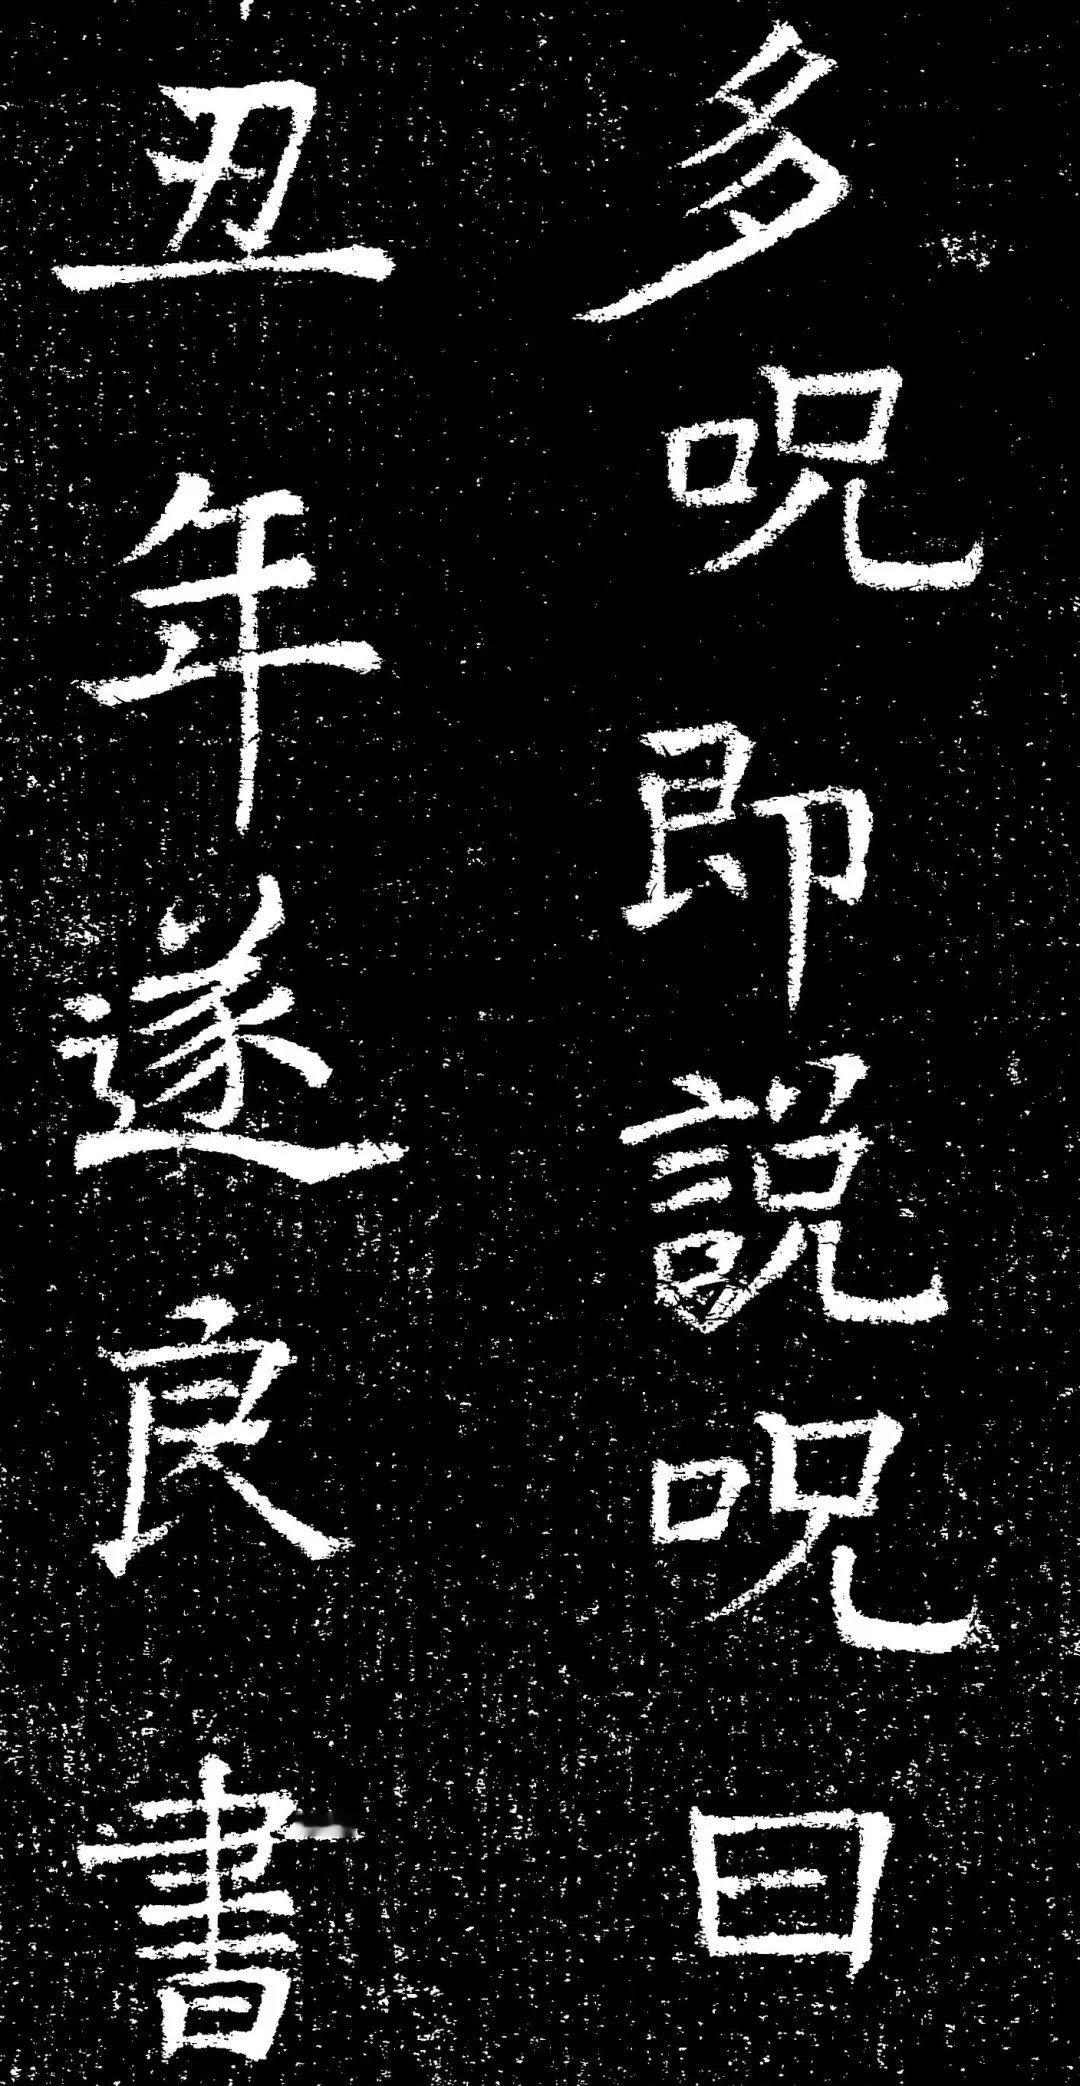 多呪即説呪曰
丑年遂良書